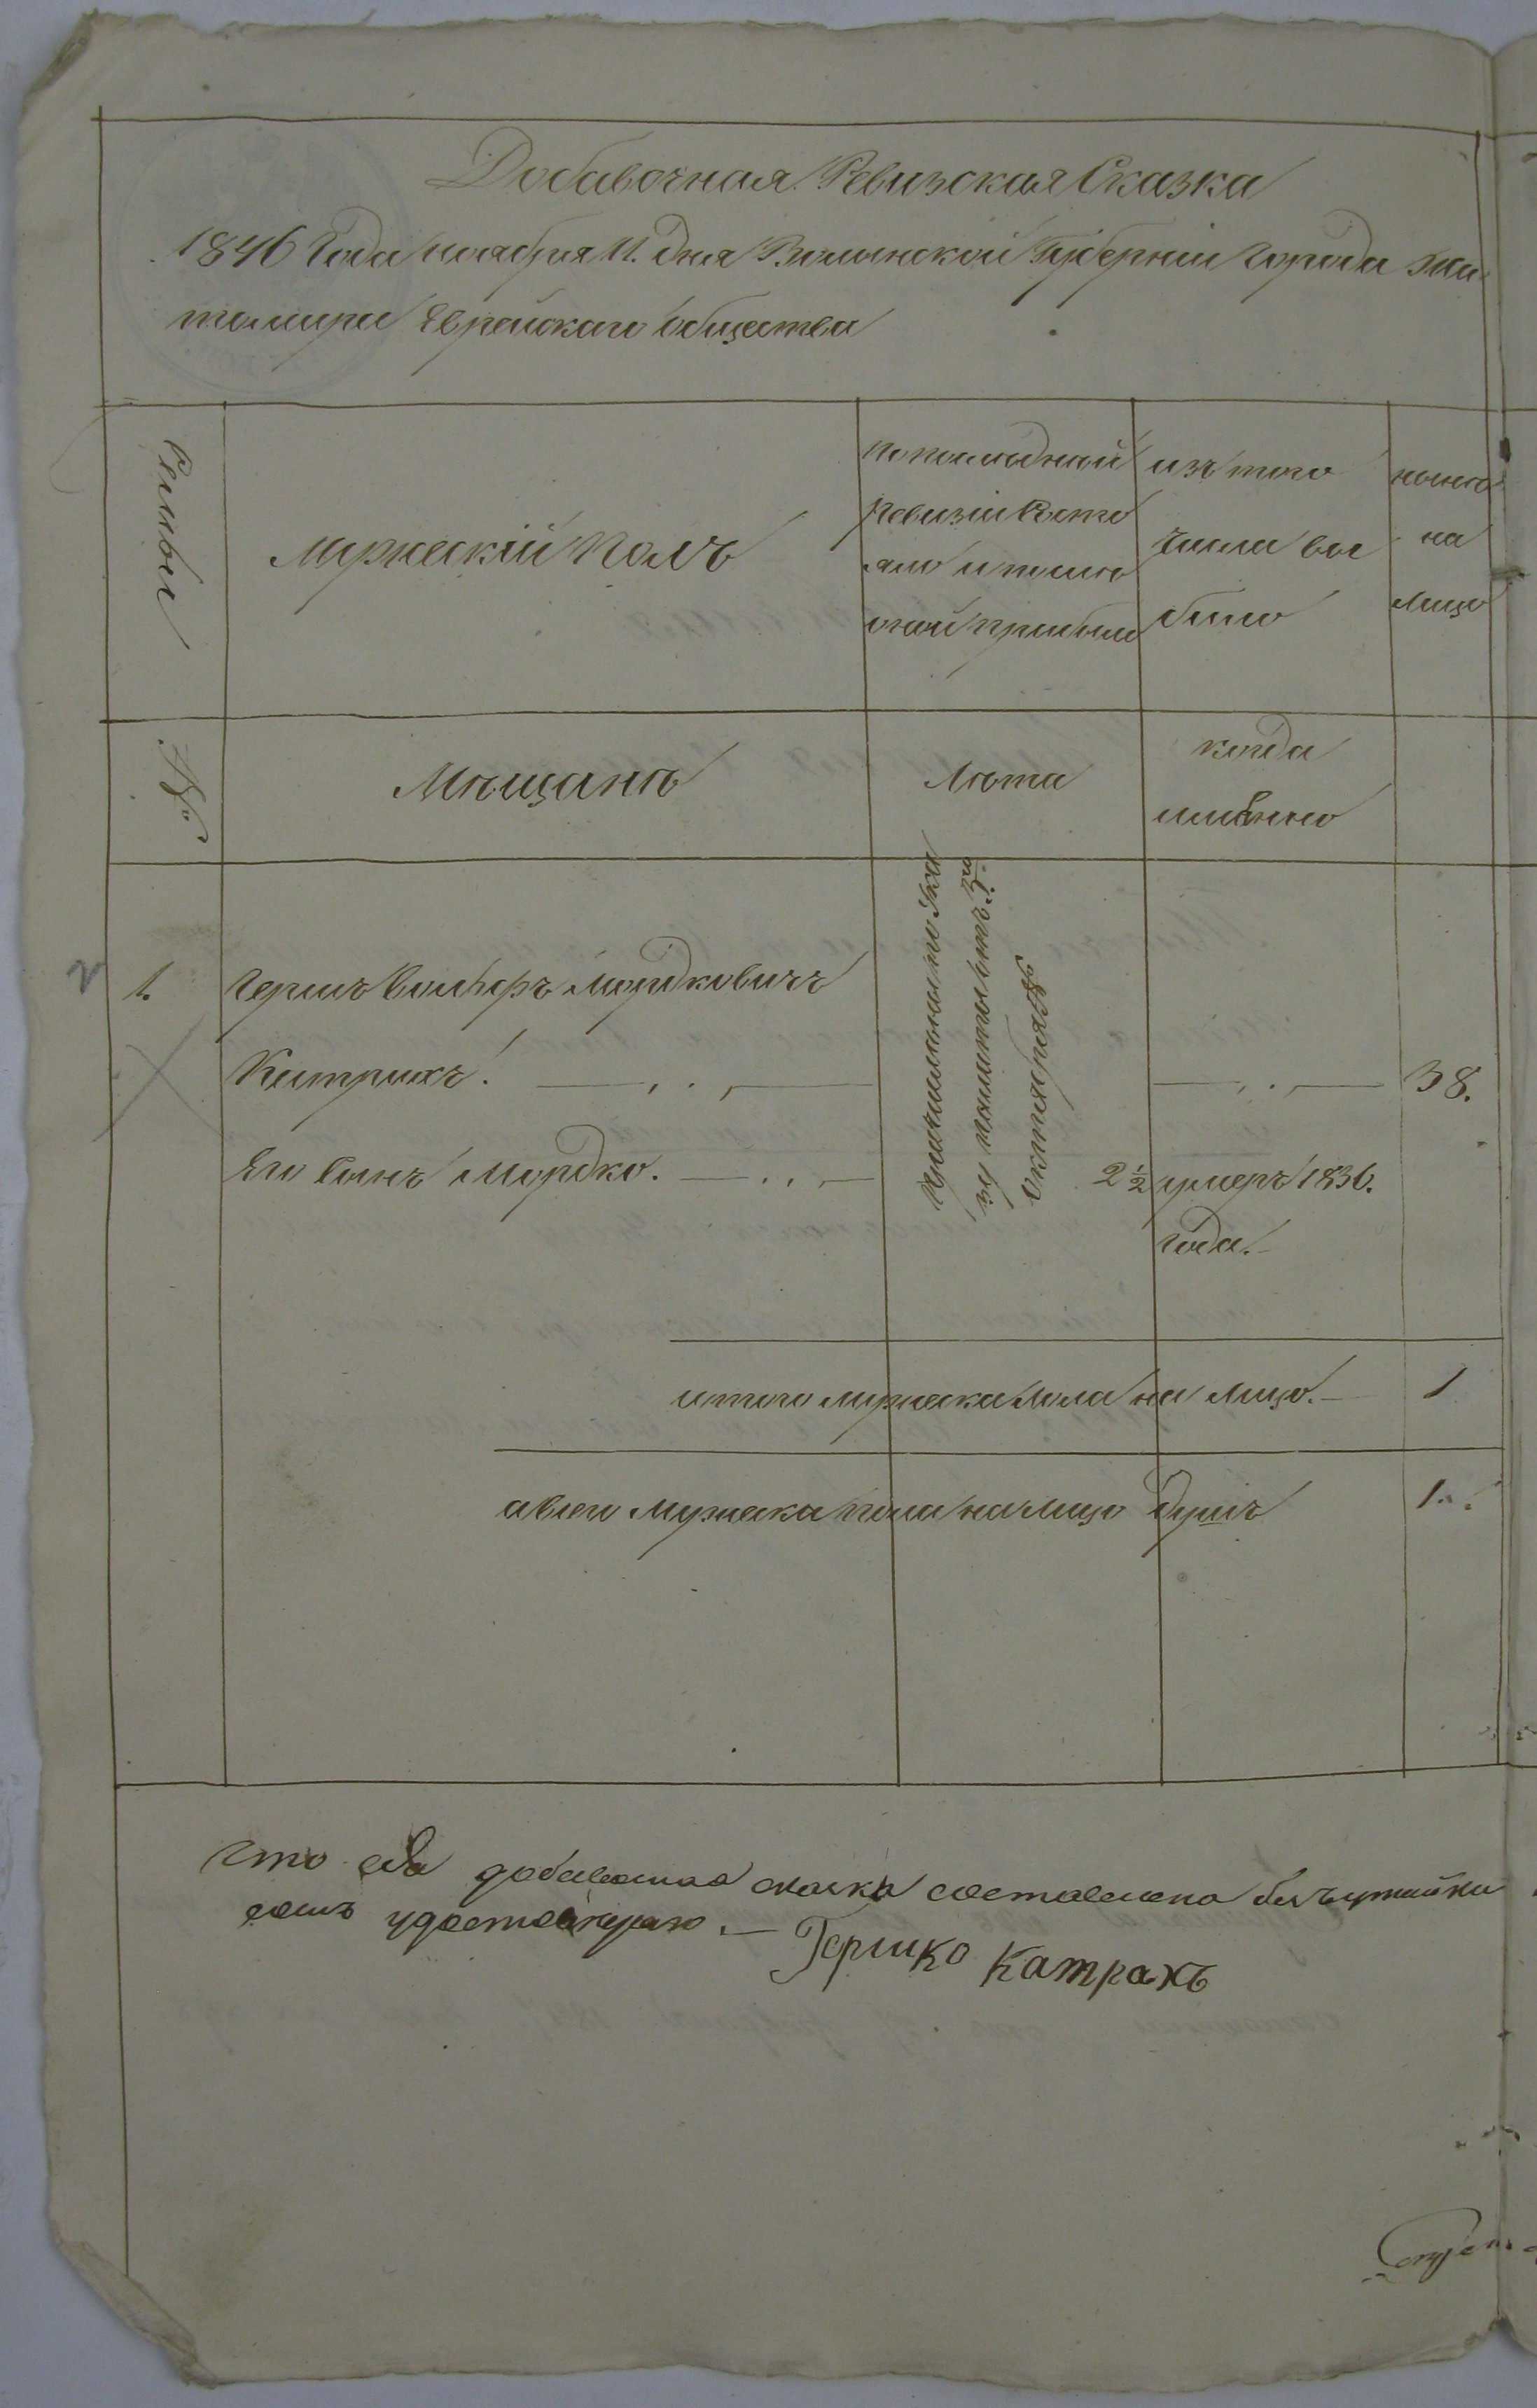 Добавочная Ревизская Сказка
1846 Года ноября 11. дня Волынской Губерніи города Жи
томира Еврейскаго общества
Семьи
Мужескій полъ
по последней
Ревизіи состо
яло и после
оной прибыло
изъ того
числа вы
было
ныне
на
лицо
№
Мещане
Лета
когда
именно
1.
Гершъ Мордковичъ
Катрихъ.
причислены по Ука
зу палаты отъ
Октября
38.
Его сынъ Мордко.
2½
умеръ 1836.
года.
итого мужеска пола на лицо.
1
а всего мужеска пола на лицо душъ
1.
Что сія добавочная сказка составлена безъ утайки
въ удостоверяю. — Гершко Катрахъ